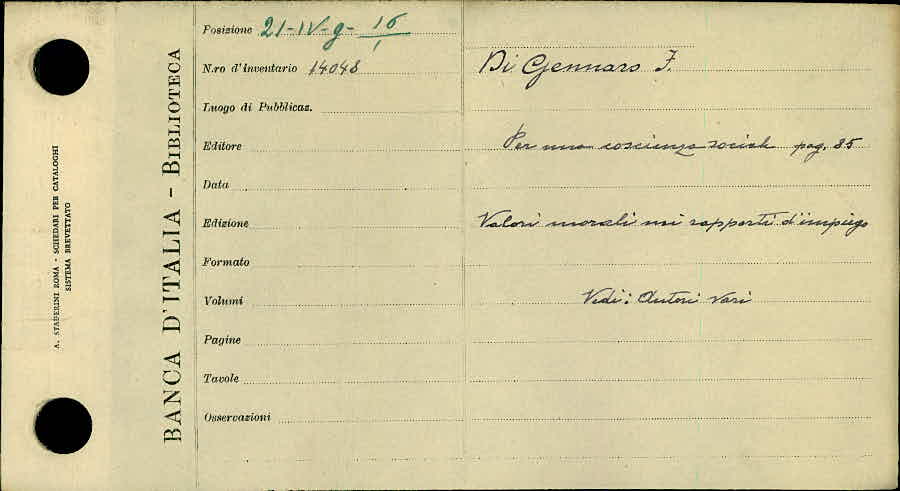 A. STADERINI ROMA - SCHEDARI PER CATALOGHI
SISTEMA BREVETTATO
BANCA D'ITALIA - BIBLIOTECA
Posizione 21-IV-g-16/1
N.ro d'inventario 14048
Luogo di Pubblicaz.
Editore
Data
Edizione
Formato
Volumi
Pagine
Tavole
Osservazioni
Di Gennaro F.
Per una coscienza sociale pag. 85
Valori morali nei rapporti d'impiego
Vedi: Autori Vari